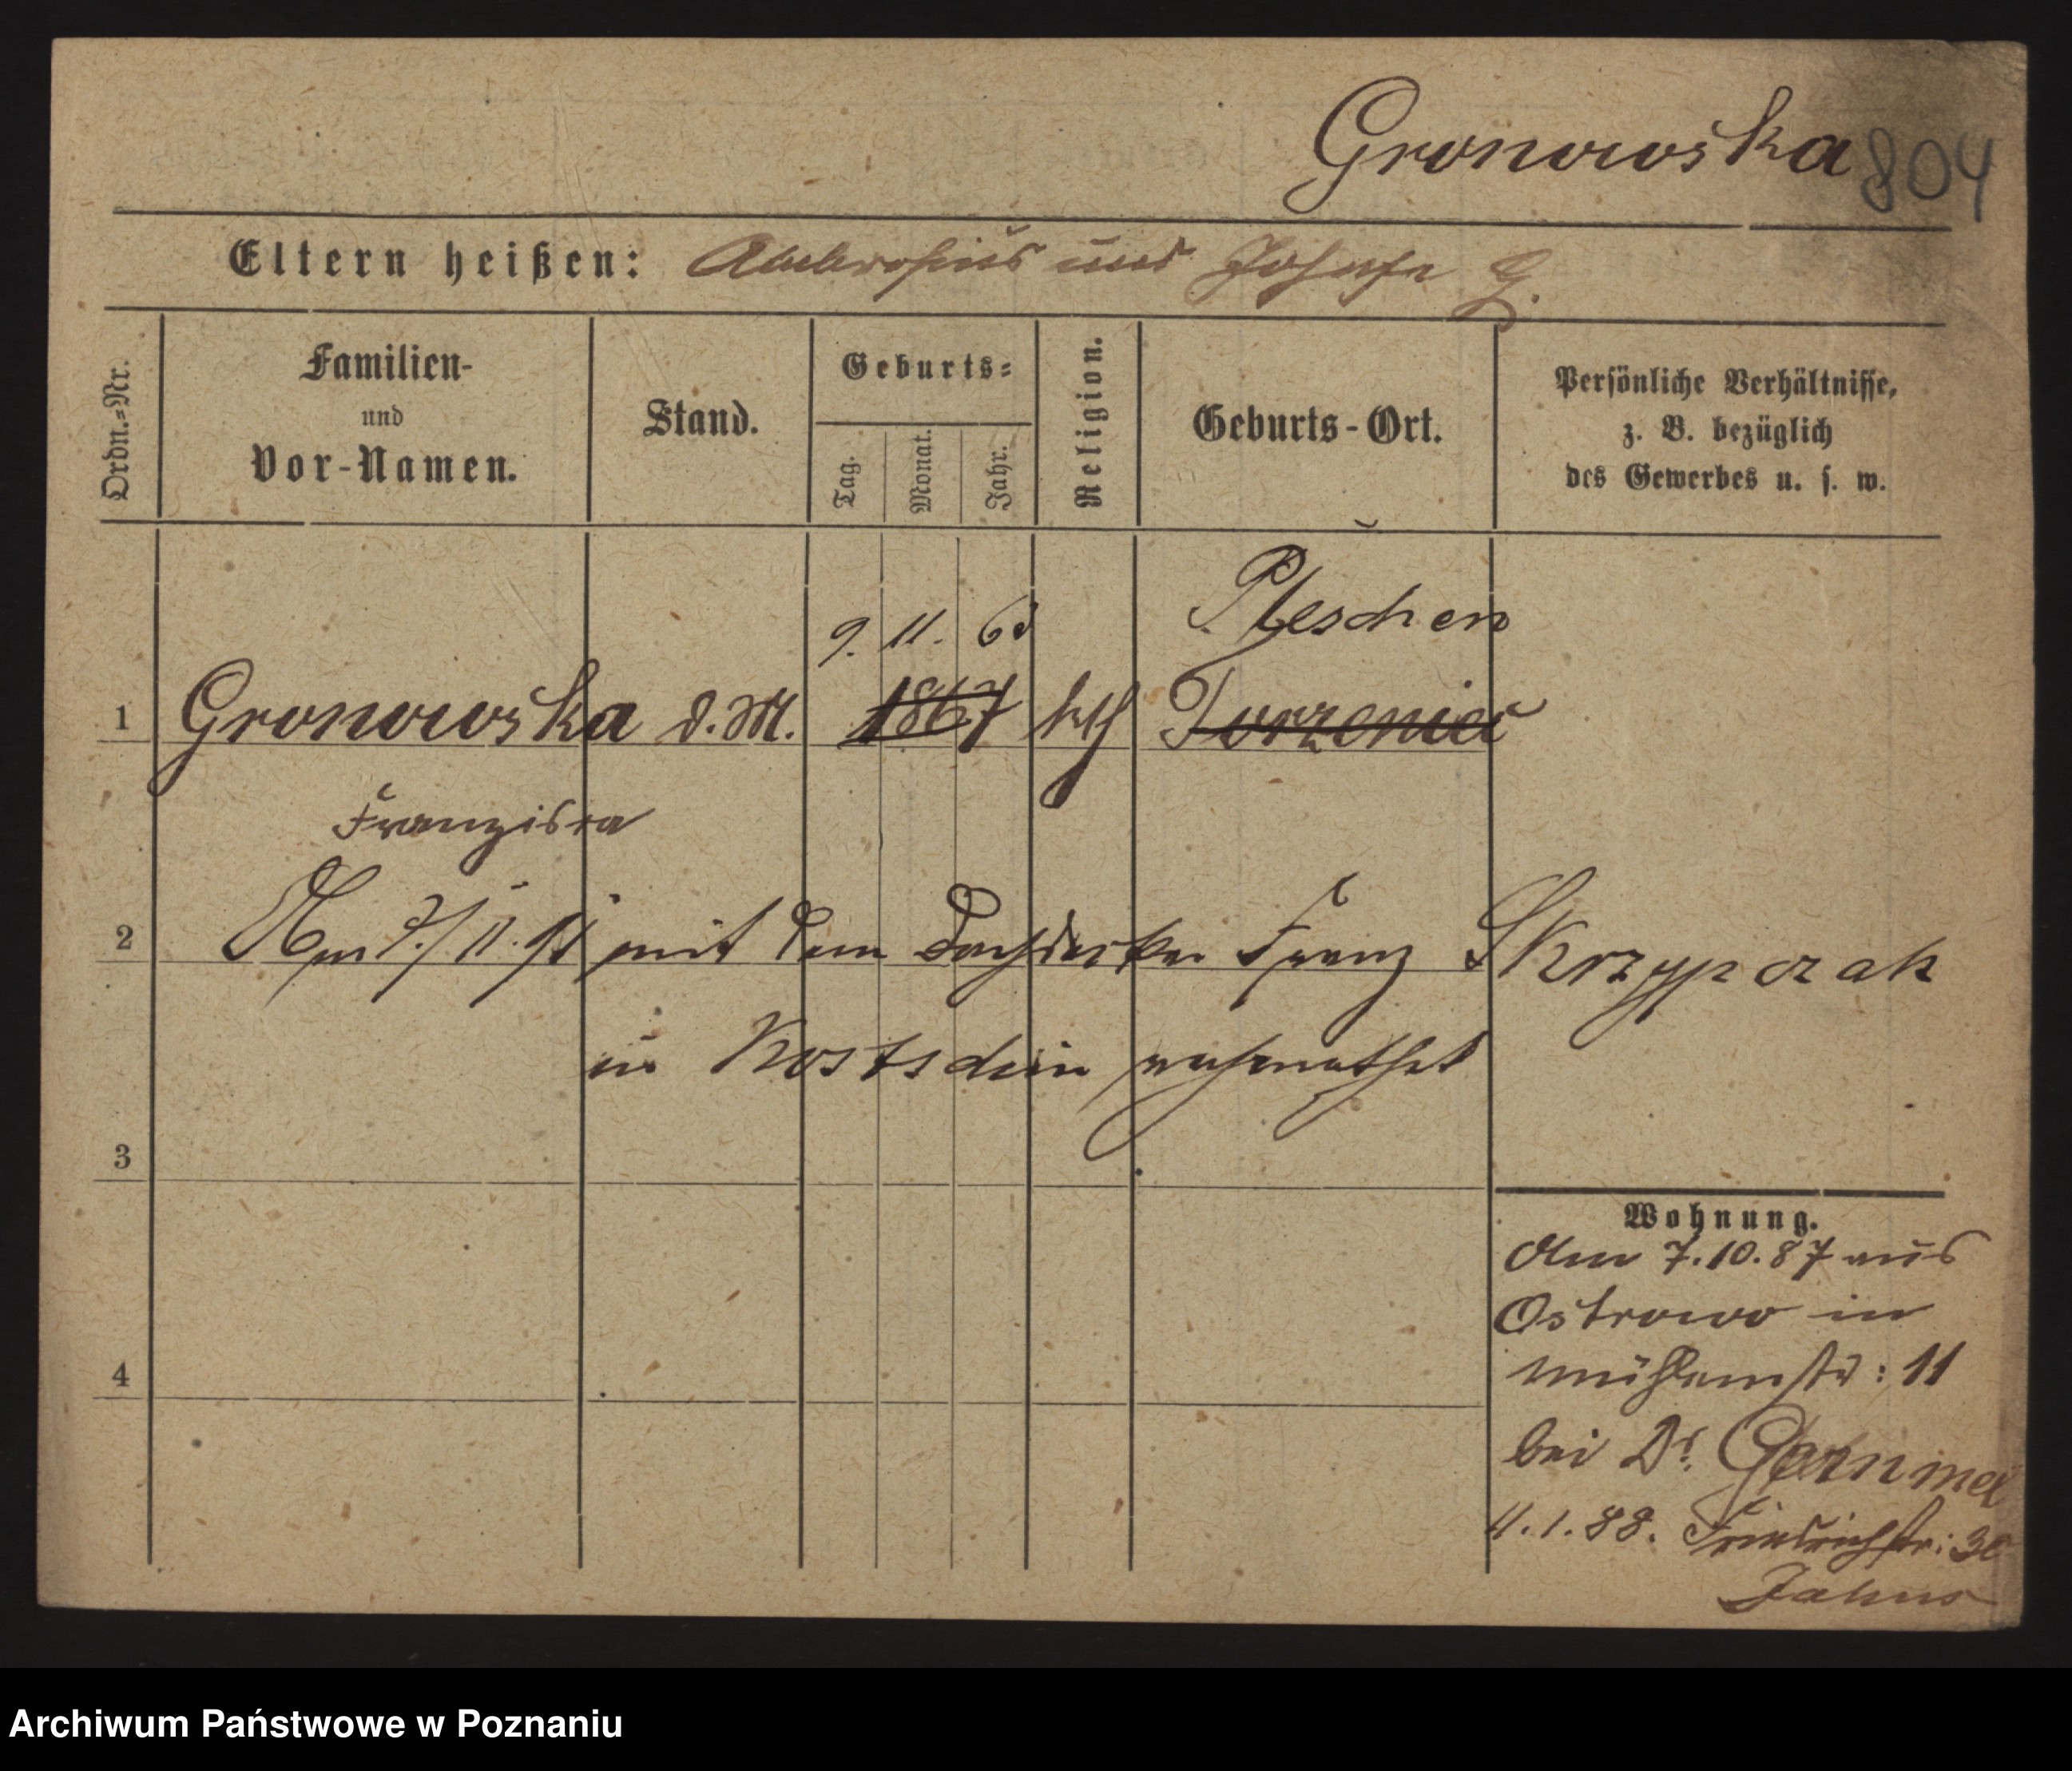 Gronowska 804
Eltern heißen: Ambrosius und Josepha G.
Ordn.=Nr.
Familien-
und
Vor-Namen.
Stand.
Geburts=
Tag.
Monat.
Jahr.
Religion.
Geburts-Ort.
Persönliche Verhältnisse,
z. B. bezüglich
des Gewerbes u. s. w.
9. 11. 63 Pleschen
1 Gronowska d. M. 1867 kth Torzeniec
Franziska
2 Am 7./11. 91 mit dem Dachdecker Franz Skrzypczak
in verheirathet
3
Wohnung.
Am 7.10.87 aus
Ostrowo in
4
Mühlenstr: 11
bei Dr.
4.1.88. Friedrichstr: 30
Archiwum Państwowe w Poznaniu